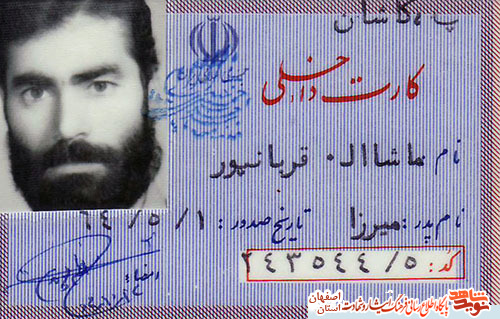 پ کاشان
کارت داخلی
نام ماشااله قربانپور
نام پدر: میرزا تاریخ صدور: ۶۴/۵/۱
امضاء
کد: ۲۴۳۵۴۴/۵
نوید شاهد
پایگاه اطلاع رسانی فرهنگ ایثار و شهادت
استان اصفهان